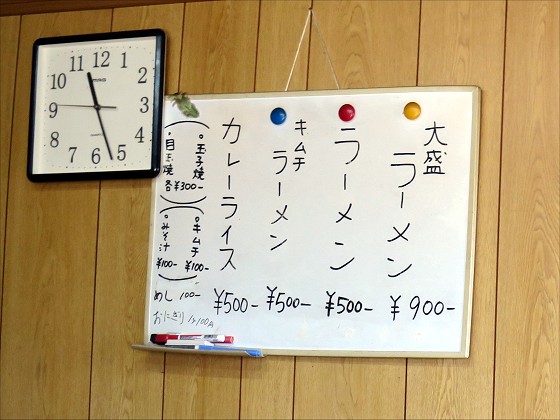 大盛ラーメン ¥900-
ラーメン ¥500-
キムチラーメン ¥500-
カレーライス ¥500-
。玉子焼
。目玉焼
各¥300-
。キムチ ¥100-
。みそ汁 ¥100-
めし 100-
おにぎり
12
1
2
3
4
5
6
7
8
9
10
11